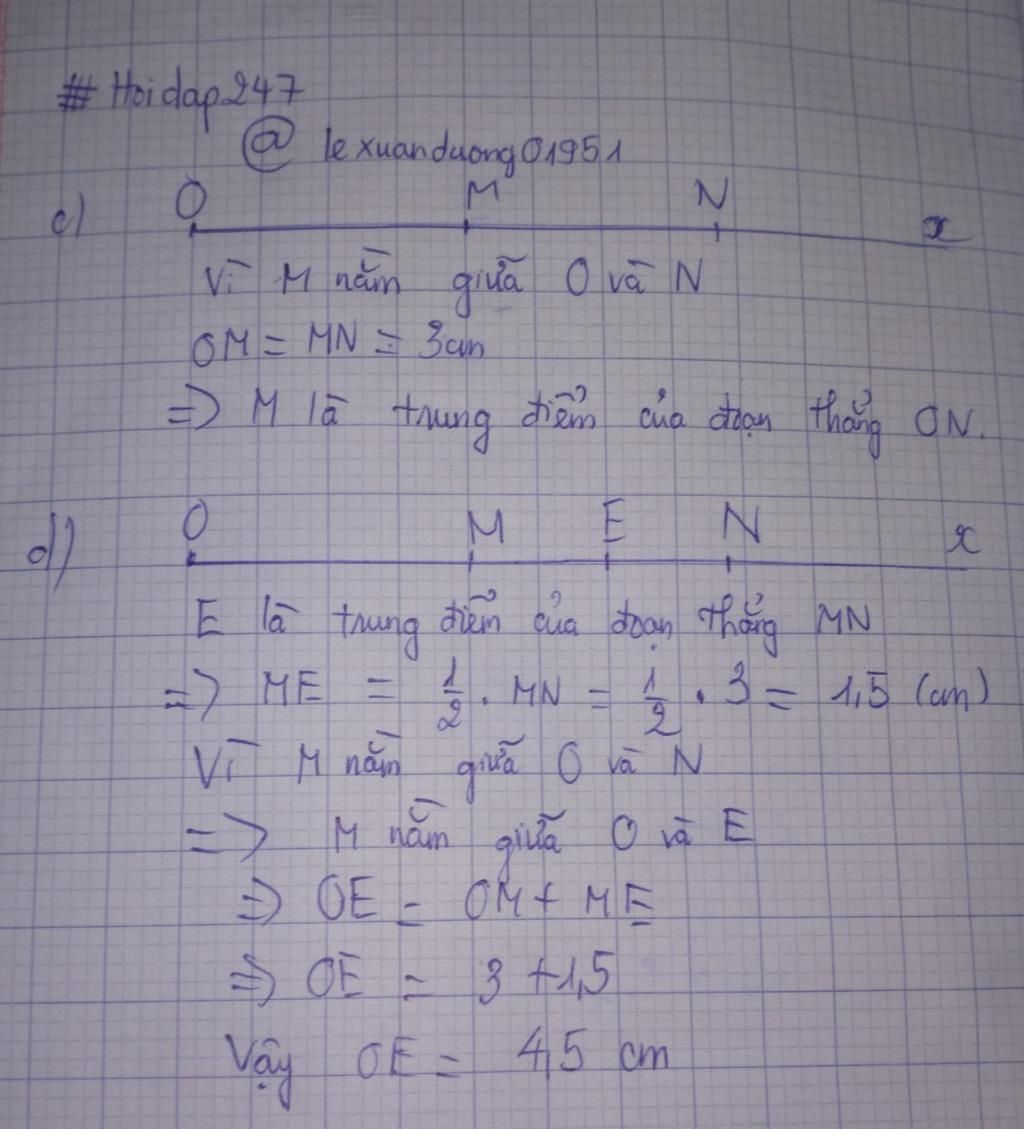 # Hoidap247
@ lexuanduong01951
c)
O M N x
Vì M nằm giữa O và N
OM = MN = 3cm
=> M là trung điểm của đoạn thẳng ON.
d)
O M E N x
E là trung điểm của đoạn thẳng MN
=> ME = 1/2 . MN = 1/2 . 3 = 1,5 (cm)
Vì M nằm giữa O và N
=> M nằm giữa O và E
=> OE = OM + ME
=> OE = 3 + 1,5
Vậy OE = 4,5 cm